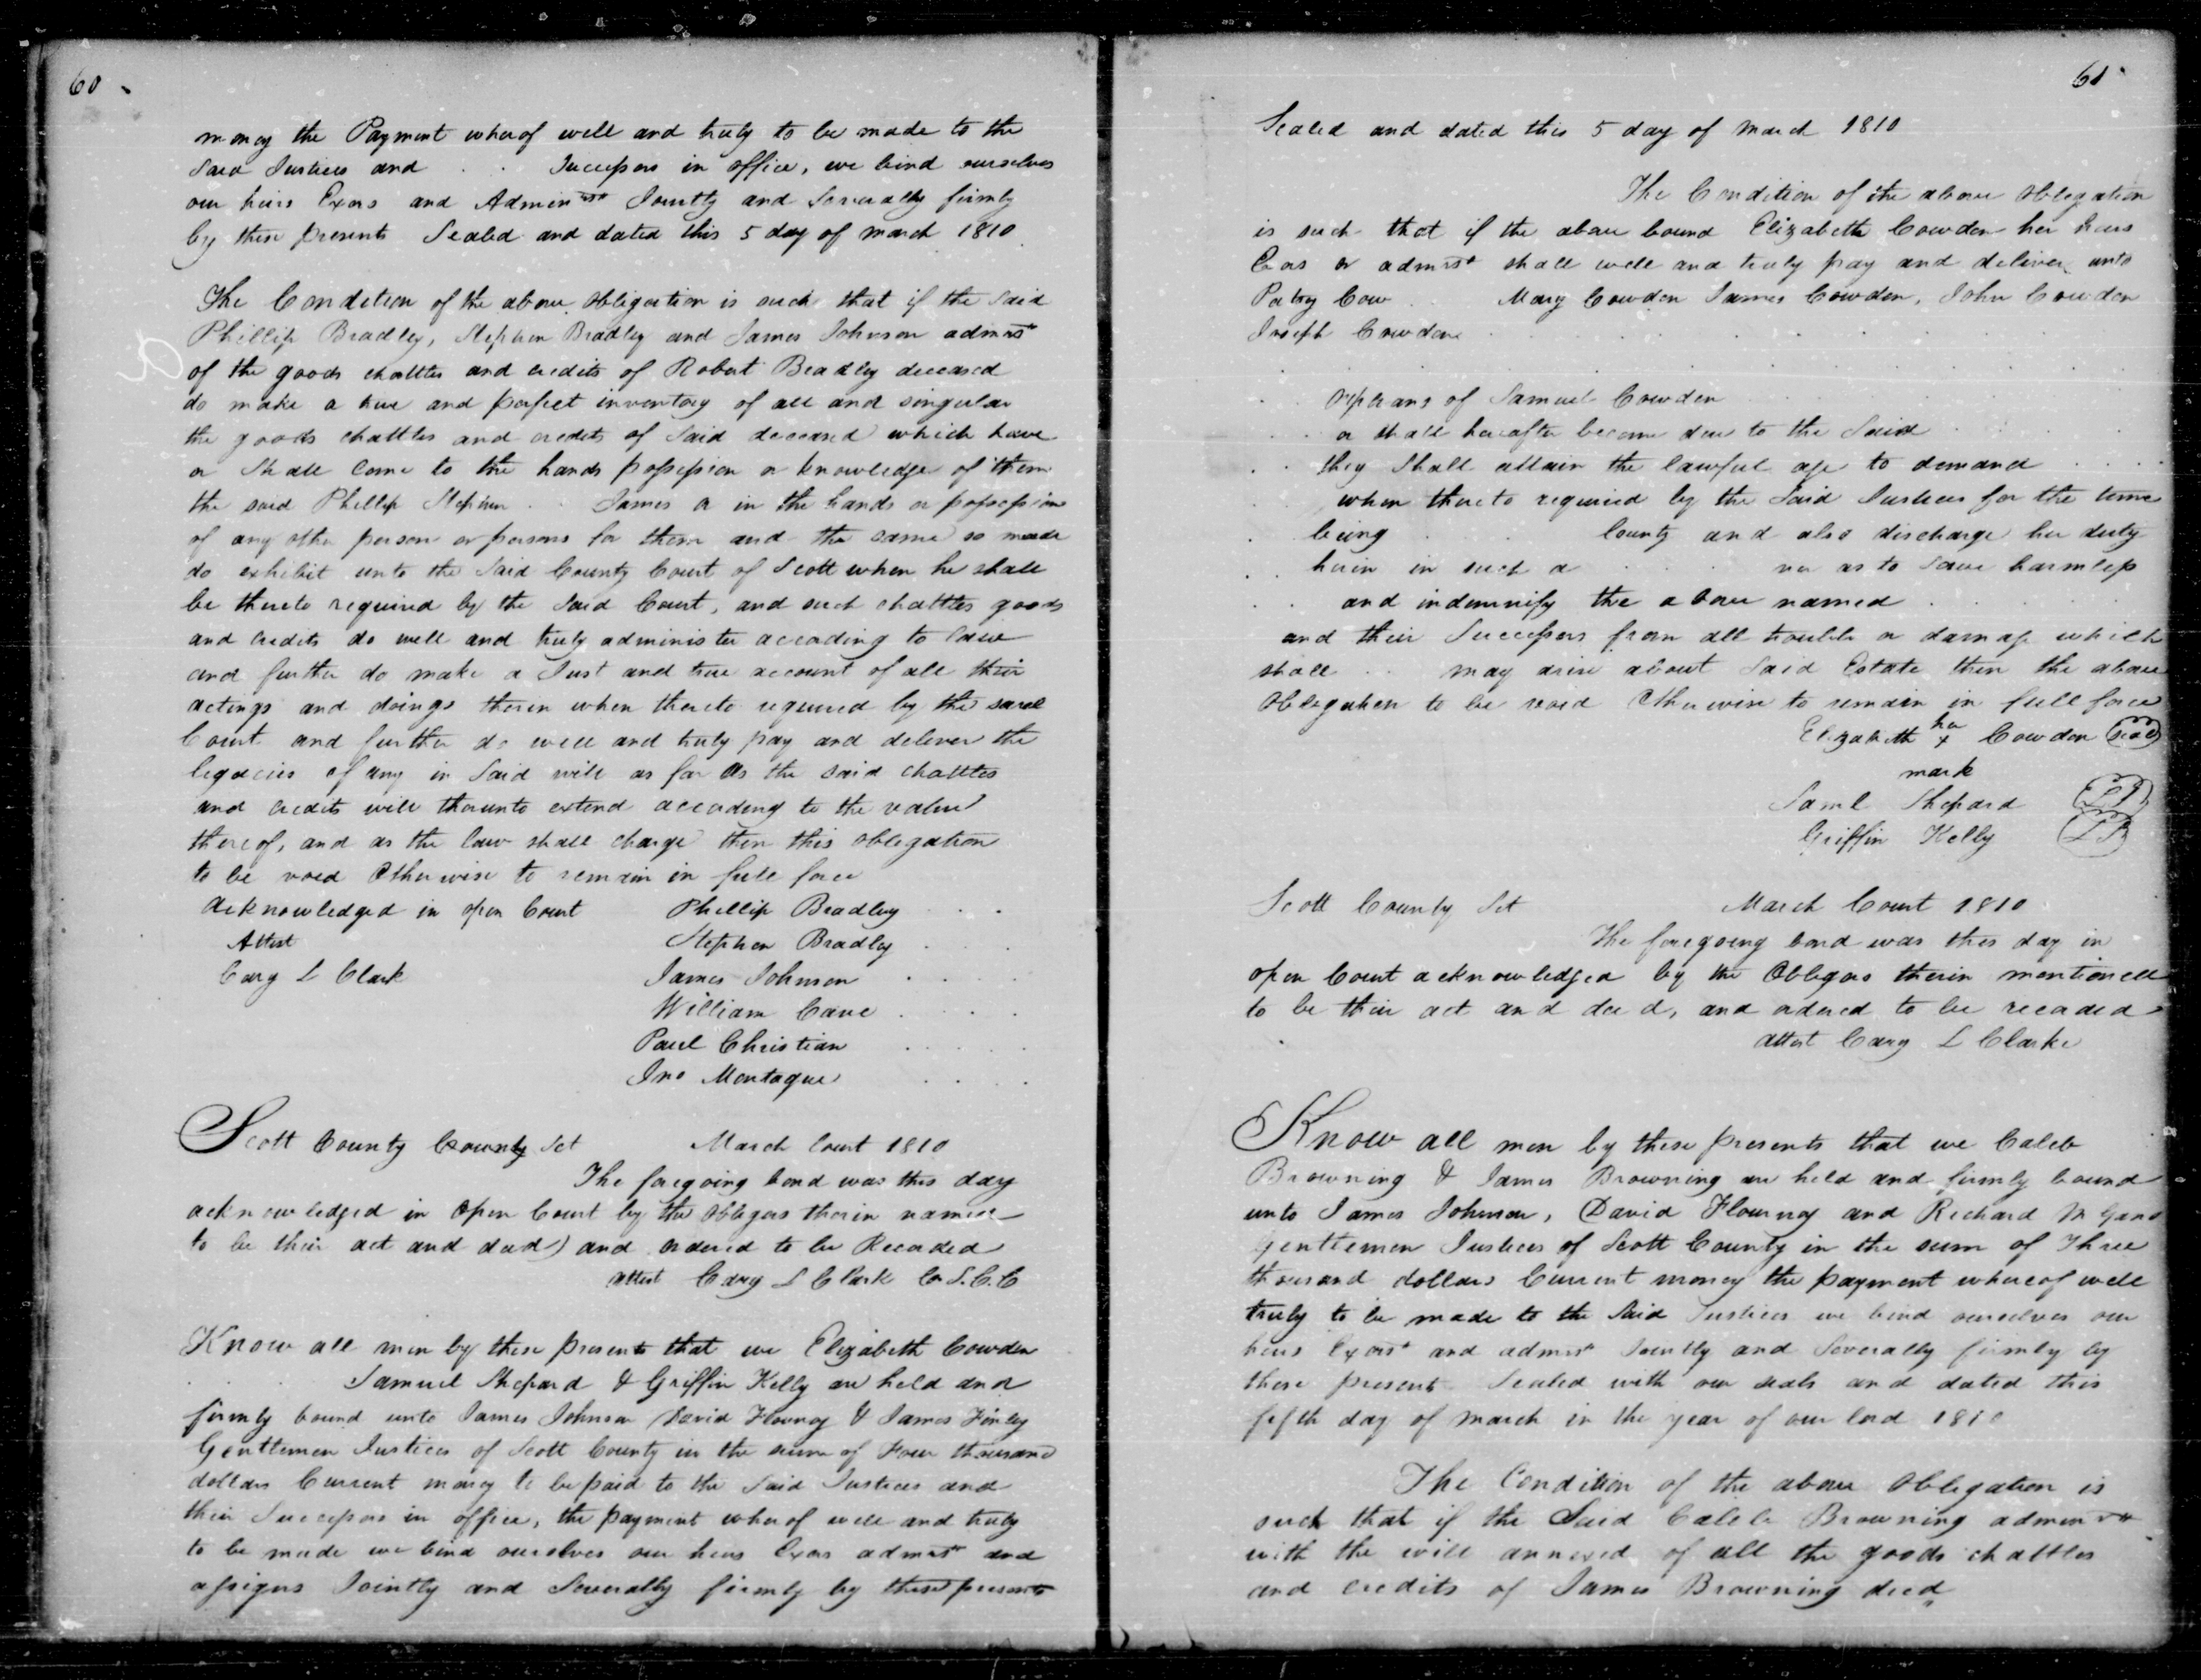 60
money the Payment wherof well and truly to be made to the
Said Justices and . . Successors in office, we bind ourselves
our heirs Exors and Adminrs Jointly and Severally firmly
by these presents Sealed and dated this 5 day of March 1810
The Condition of the above obligation is such that if the Said
Phillip Bradley, Stephen Bradley and James Johnson admrs
of the goods chattles and credits of Robert Bradley deceased
do make a true and perfect inventory of all and singular
the goods chattles and credits of Said deceased which have
or Shall come to the hands possession or knowledge of them
the said Phillip Stephen . . James or in the hands or possession
of any other person or persons for them and the same so made
do exhibit unto the Said County Court of Scott when he shall
be thereto required by the Said Court, and such chattles goods
and credits do well and truly administer according to law
and further do make a Just and true account of all their
actings and doings therin when thereto required by the said
Court and further do well and truly pay and deliver the
legacies if any in Said will as far as the said chattles
and credits will thereunto extend according to the value
thereof, and as the law shall charge then this obligation
to be void Otherwise to remain in full force
Acknowledged in open Court Phillip Bradley . . .
Attest Stephen Bradley . .
Cary L Clark James Johnson . . . .
William Cave . . . .
Paul Christian . . . . .
Jno Montague . . . .
Scott County County Sct March Court 1810
The foregoing bond was this day
acknowledged in Open Court by the obligors therin named
to be their act and deed) and ordered to be Recorded
Attest Cary L Clark Cr S.C.C
Know all men by these presents that we Elizabeth Cowden
. . . Samuel Shepard & Griffin Kelly are held and
firmly bound unto James Johnson David Flournoy & James Finley
Gentlemen Justices of Scott County in the sum of Four thousand
dollars Current money to be paid to the Said Justices and
their Successors in office, the payment wherof well and truly
to be made we bind ourselves our heirs Exors admrs and
assigns Jointly and Severally firmly by these presents
61
Sealed and dated this 5 day of March 1810
The Condition of the above obligation
is such that if the above bound Elizabeth Cowden her heirs
Exors or admrs shall well and truly pay and deliver unto
Patsy Cow . . Mary Cowden James Cowden, John Cowden
Joseph Cowden . . . . . . . .
. . orphans of Samuel Cowden . . . .
. . . or shall hereafter become due to the Said . . . .
. . they Shall attain the lawful age to demand . . . .
. . when thereto required by the Said Justices for the time
. being . . County and also discharge her duty
. . herin in such a . . . ner as to Save harmless
. . and indemnify the above named . . . .
and their Successors from all trouble or damage which
shall . . may arise about Said Estate then the above
Obligation to be void Otherwise to remain in full force
Elizabeth her x Cowden (seal)
mark
Saml Shepard (LS)
Griffin Kelly (LS)
Scott County Sct March Court 1810
The foregoing bond was this day in
open Court acknowledged by the Obligors therin mentioned
to be their act and deed, and ordered to be recorded
attest Cary L Clarke
Know all men by these presents that we Caleb
Browning & James Browning are held and firmly bound
unto James Johnson, David Flournoy and Richard M Gano
Gentlemen Justices of Scott County in the sum of Three
thousand dollars Current money the payment whereof well
truly to be made to the Said Justices we bind ourselves our
heirs Exors and admrs Jointly and Severally firmly by
these presents Sealed with our seals and dated this
fifth day of March in the year of our lord 1810
The Condition of the above Obligation is
such that if the Said Caleb Browning adminr
with the will annexed of all the goods chattles
and credits of James Browning decd